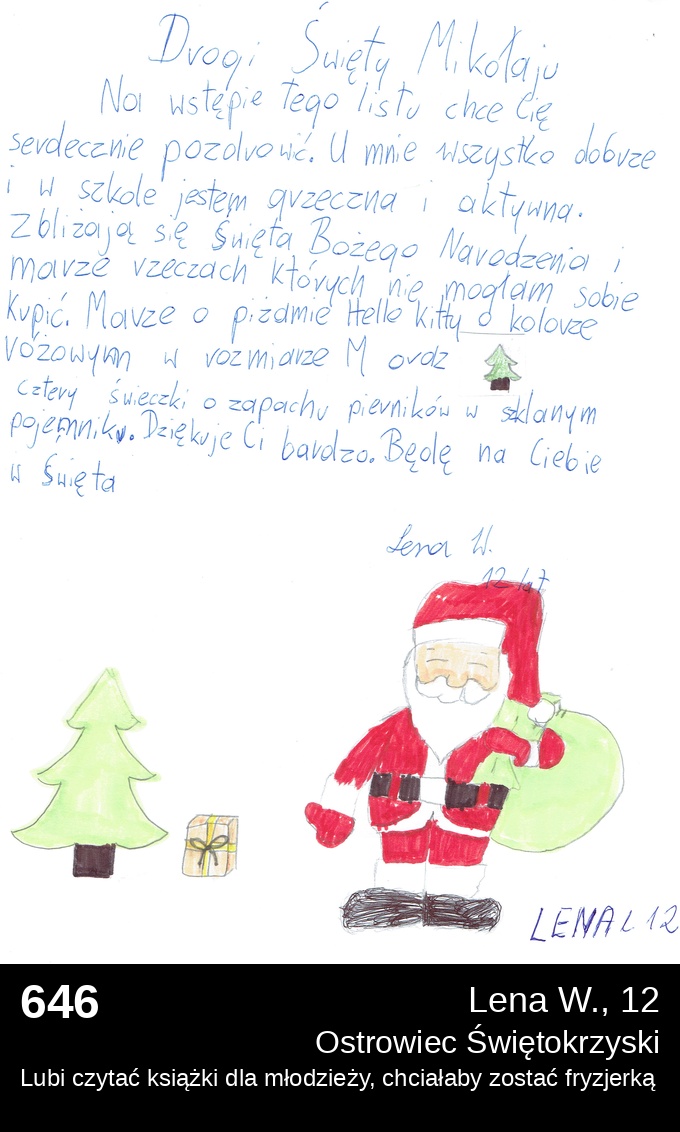 Drogi Święty Mikołaju
Na wstępie tego listu chce Cię
serdecznie pozdrowić. U mnie wszystko dobrze
i w szkole jestem grzeczna i aktywna.
Zbliżają się Święta Bożego Narodzenia i
marze rzeczach których nie mogłam sobie
kupić. Marze o piżamie Hello kitty o kolorze
różowym w rozmiarze M ordz
cztery świeczki o zapachu pierników w szklanym
pojemniku. Dziękuje Ci bardzo. Będę na Ciebie
w Święta
Lena W.
12 lat
LENA L 12
646
Lena W., 12
Ostrowiec Świętokrzyski
Lubi czytać książki dla młodzieży, chciałaby zostać fryzjerką